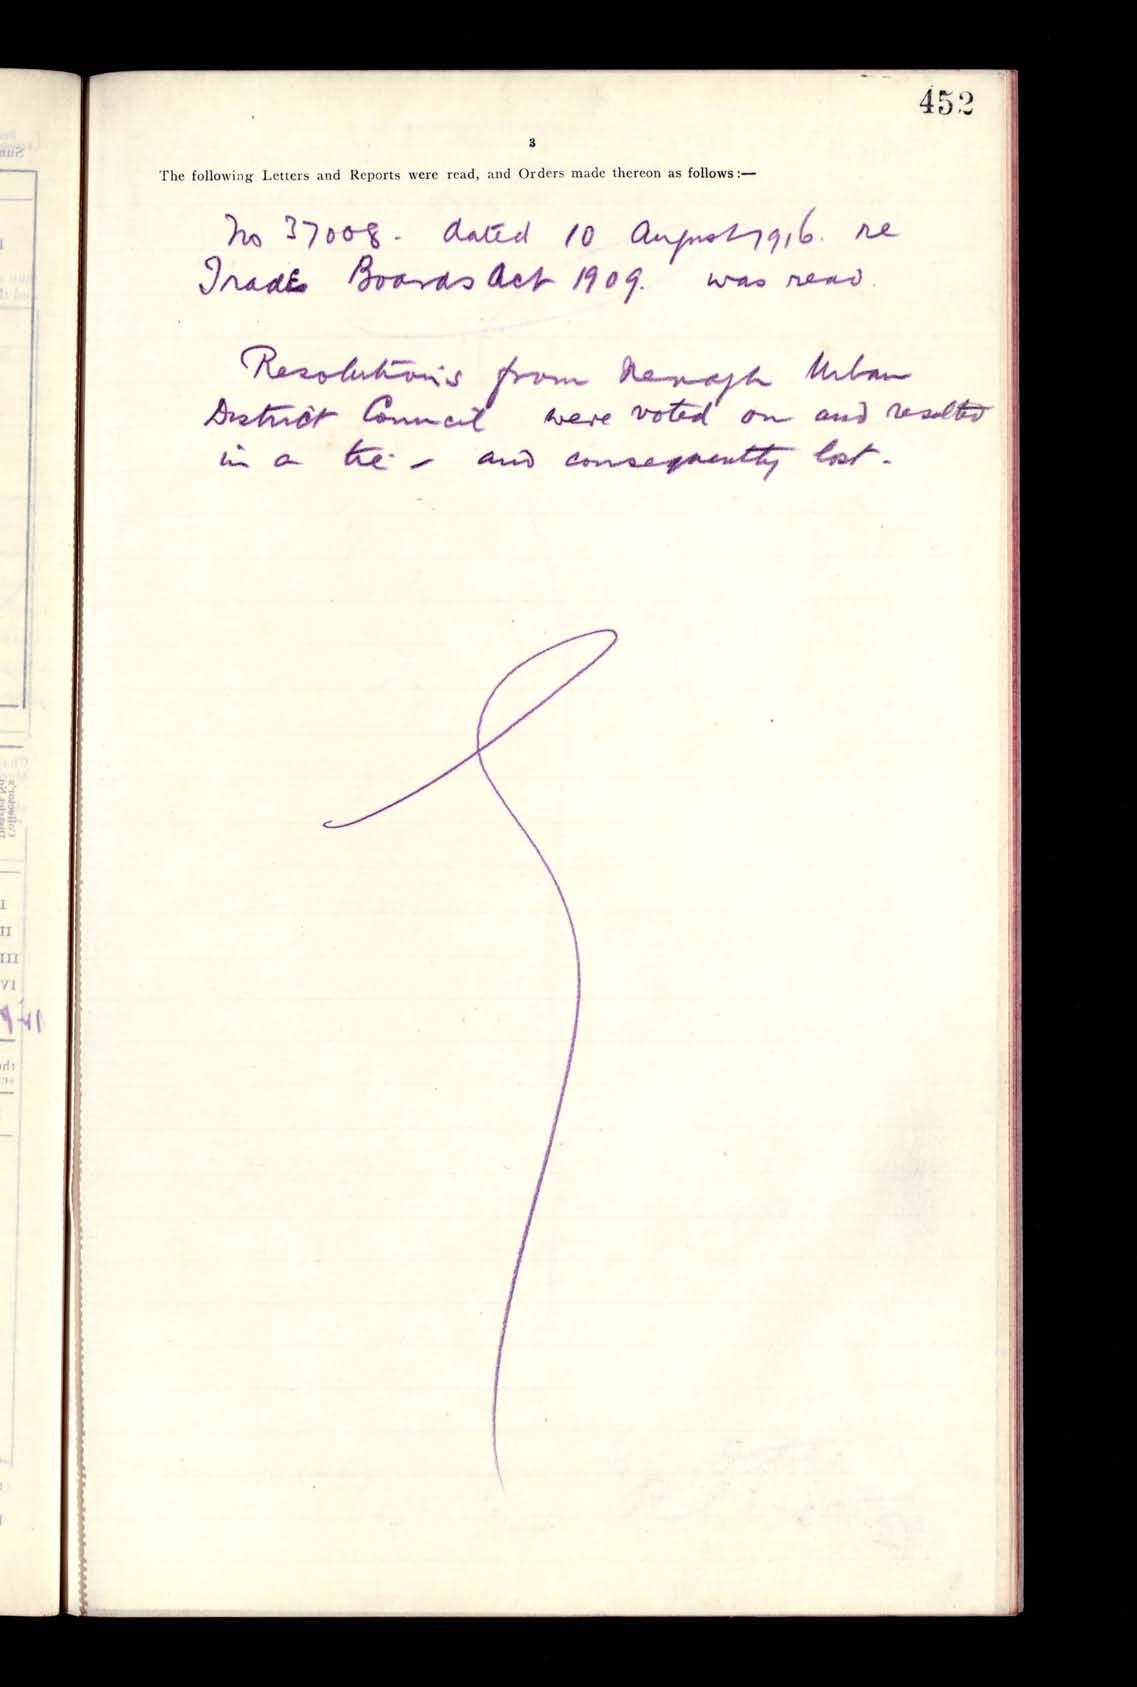 452
3
The following Letters and Reports were read, and Orders made thereon as follows:—
No 37008. dated 10 August 1916. re
Trade Boards Act 1909. was read.
Resolutions from Nenagh Urban
District Council were voted on and resulted
in a tie - and consequently lost.
I
II
III
IV